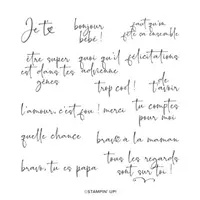 Je t'♡
bonjour
bébé !
faut qu'on
fête ça ensemble
être super
est dans tes
gènes
quoi qu'il
advienne
félicitations
trop cool !
de
t'avoir
l'amour, c'est fou !
merci
tu comptes
pour moi
quelle chance
bravo à la maman
bravo, tu es papa
tous les regards
sont sur toi !
©STAMPIN' UP!